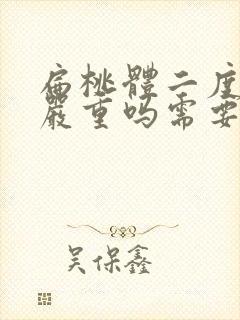 扁桃體二度
嚴重吗需要
吴保鑫